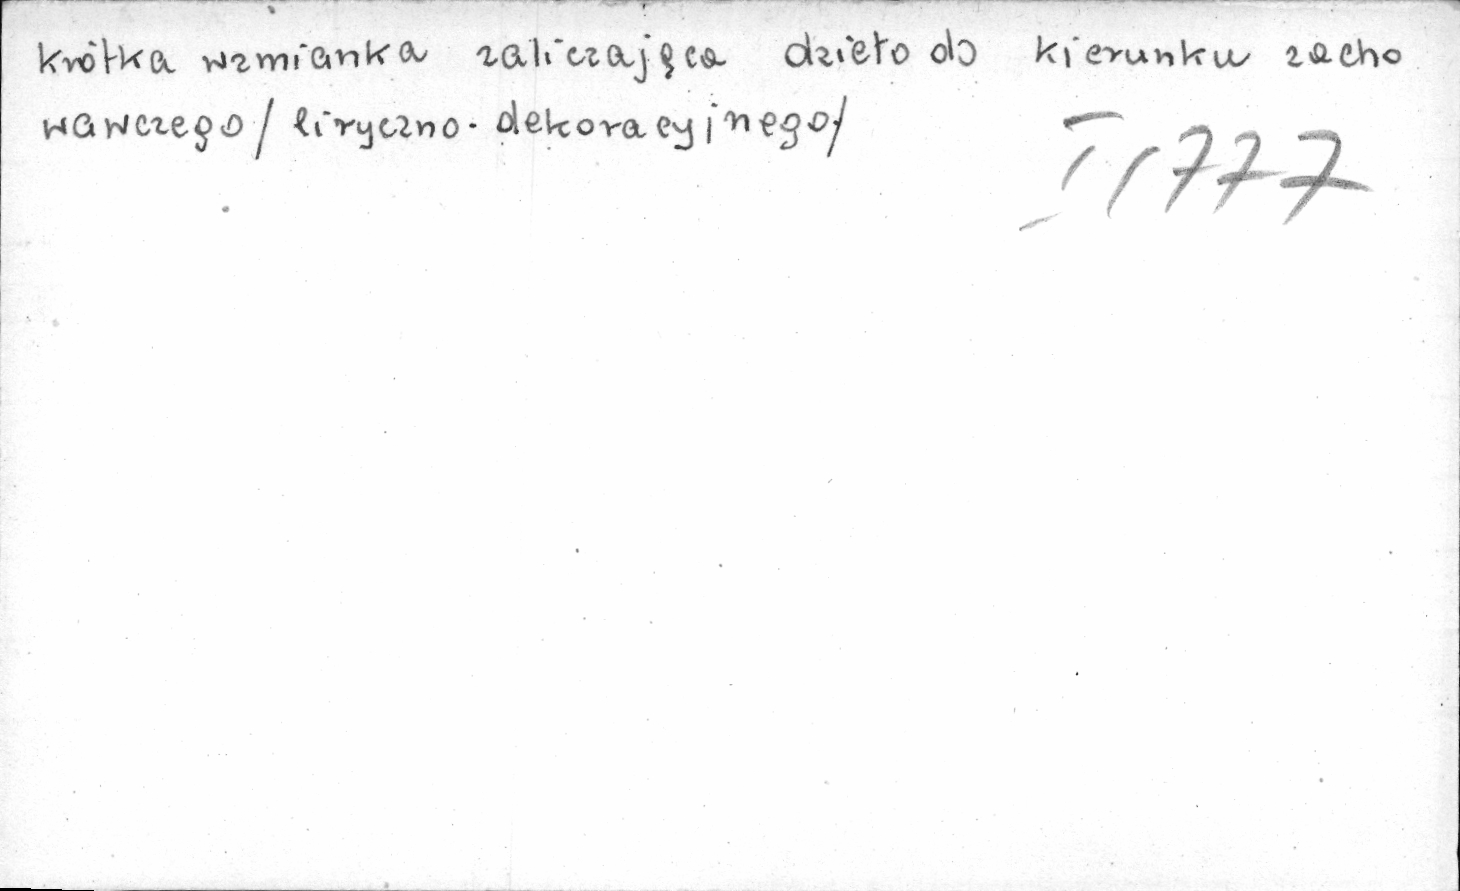 krótka wzmianka zaliczająca dzieło do kierunku zacho
wawczego/ liryczno-dekoracyjnego/
I, 777